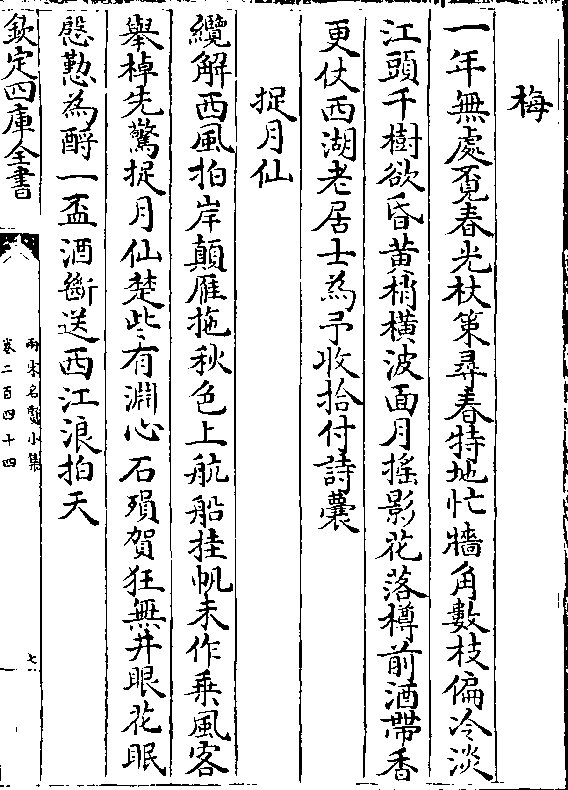 梅
一年無處覔春光杖策尋春特地忙牆角數枝偏冷淡
江頭千樹欲昏黄梢横波面月摇影花落樽前酒帶香
更仗西湖老居士為予收拾付詩囊
捉月仙
纜解西風拍岸顛雁拖秋色上航船挂帆未作乗風客
舉棹先驚捉月仙楚些有淵心石殞賀狂無井眼花眠
慇懃為酹一盃酒斷送西江浪拍天
欽定四庫全書
兩宋名賢小集
卷二百四十四
七